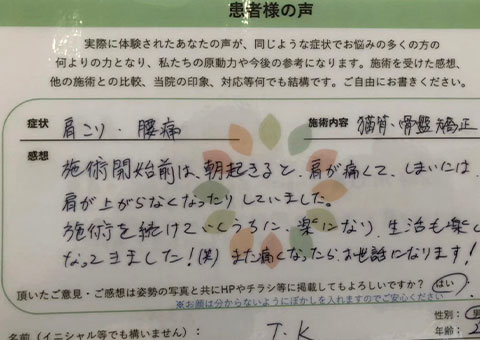 患者様の声
実際に体験されたあなたの声が、同じような症状でお悩みの多くの方の
何よりの力となり、私たちの原動力や今後の参考になります。施術を受けた感想、
他の施術との比較、当院の印象、対応等何でも結構です。ご自由にお書きください。
症状 肩こり・腰痛 施術内容 猫背・骨盤矯正
感想
施術開始前は、朝起きると、肩が痛くて、しまいには、
肩が上がらなくなったりしていました。
施術を続けていくうちに、楽になり、生活も楽し
なってきました!(笑) また痛くなったら、お世話になります!
頂いたご意見・ご感想は姿勢の写真と共にHPやチラシ等に掲載してもよろしいですか? はい
※お顔は分からないようにぼかしを入れますのでご安心ください
性別: 男
名前(イニシャル等でも構いません): T.K 年齢: 2